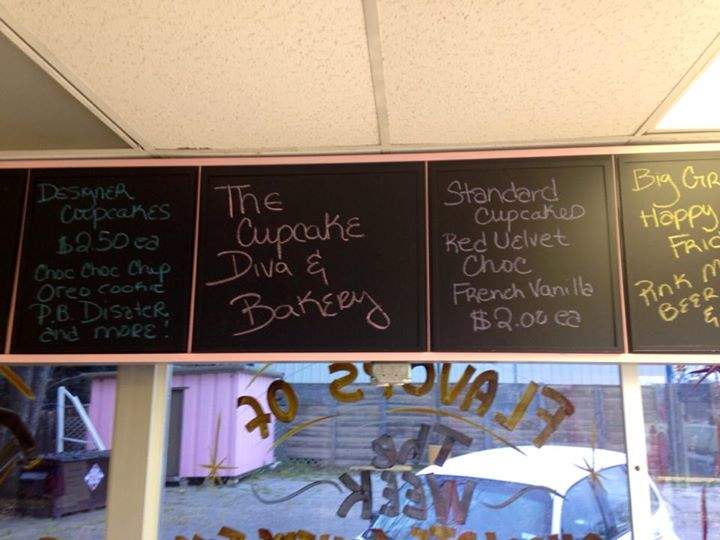 Designer
Coopcakes
$2.50 ea
Choc Choc Chip
Oreo Cookie
P.B. Disater
and more!
The
Cupcake
Diva &
Bakery
Standard
Cupcakes
Red Velvet
Choc
French Vanilla
$2.00 ea
Big
Happy
Pink
Beer
&
FLAVORS OF
The
WEEK